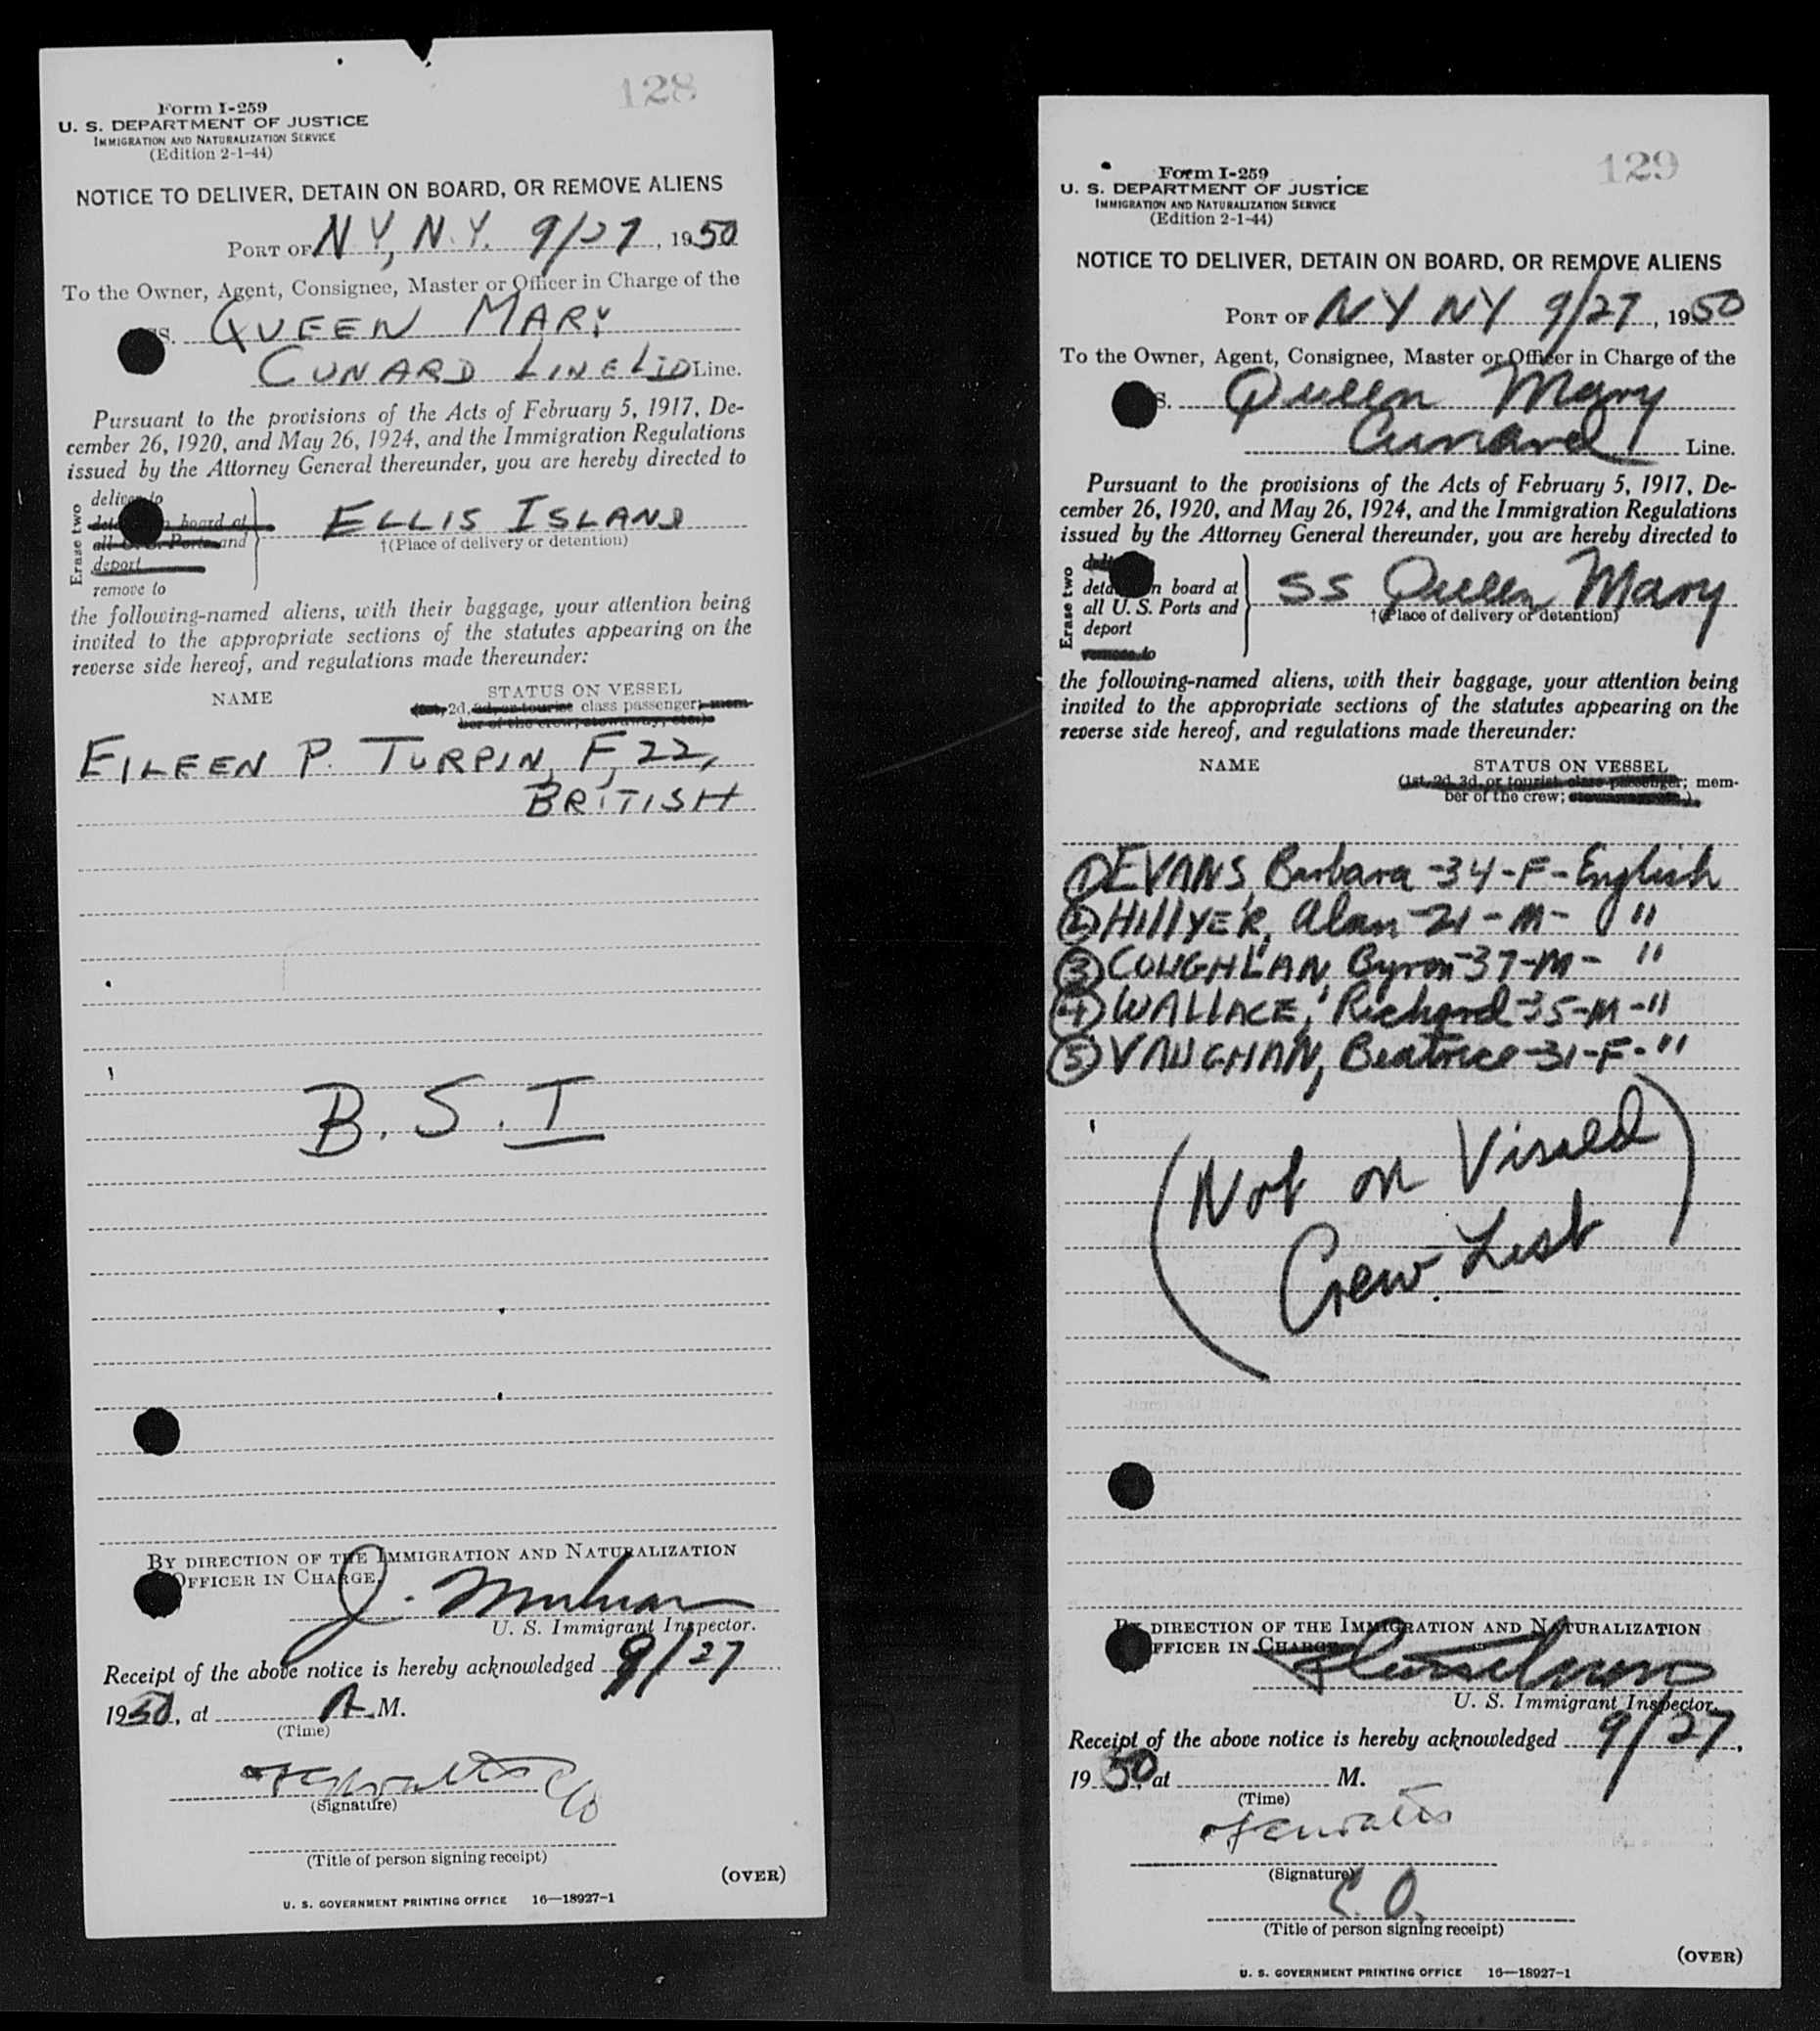 128
Form I-259
U. S. DEPARTMENT OF JUSTICE
IMMIGRATION AND NATURALIZATION SERVICE
(Edition 2-1-44)
NOTICE TO DELIVER, DETAIN ON BOARD, OR REMOVE ALIENS
PORT OF N.Y, N.Y. 9/27, 1950
To the Owner, Agent, Consignee, Master or Officer in Charge of the
SS. QUEEN MARY
CUNARD LINE LTD Line.
Pursuant to the provisions of the Acts of February 5, 1917, De-
cember 26, 1920, and May 26, 1924, and the Immigration Regulations
issued by the Attorney General thereunder, you are hereby directed to
Erase two
deliver to
detain on board at
all U. S. Ports and
deport
remove to
ELLIS ISLAND
†(Place of delivery or detention)
the following-named aliens, with their baggage, your attention being
invited to the appropriate sections of the statutes appearing on the
reverse side hereof, and regulations made thereunder:
NAME STATUS ON VESSEL
(1st, 2d, 3d, or tourist class passenger; mem-
ber of the crew; stowaway, etc.)
EILEEN P. TURPIN, F, 22,
BRITISH
B. S. I
BY DIRECTION OF THE IMMIGRATION AND NATURALIZATION
OFFICER IN CHARGE.
J.
U. S. Immigrant Inspector.
Receipt of the above notice is hereby acknowledged 9/27
1950, at A.M.
(Time)
(Signature)
(Title of person signing receipt)
(OVER)
U. S. GOVERNMENT PRINTING OFFICE 16—18927-1
129
Form I-259
U. S. DEPARTMENT OF JUSTICE
IMMIGRATION AND NATURALIZATION SERVICE
(Edition 2-1-44)
NOTICE TO DELIVER, DETAIN ON BOARD, OR REMOVE ALIENS
PORT OF NY NY 9/27, 1950
To the Owner, Agent, Consignee, Master or Officer in Charge of the
S. Queen Mary
Cunard Line.
Pursuant to the provisions of the Acts of February 5, 1917, De-
cember 26, 1920, and May 26, 1924, and the Immigration Regulations
issued by the Attorney General thereunder, you are hereby directed to
Erase two
detain on board at
all U. S. Ports and
deport
remove to
SS Queen Mary
†(Place of delivery or detention)
the following-named aliens, with their baggage, your attention being
invited to the appropriate sections of the statutes appearing on the
reverse side hereof, and regulations made thereunder:
NAME STATUS ON VESSEL
(1st, 2d, 3d, or tourist class passenger; mem-
ber of the crew; )
① EVANS, Barbara - 34 - F - English
② HILLYER, Alan - 21 - M - "
③ COUGHLAN, Byron - 37 - M - "
④ WALLACE, Richard - 35 - M - "
⑤ VAUGHAN, Beatrice - 31 - F - "
(Not on Visaed
Crew List)
BY DIRECTION OF THE IMMIGRATION AND NATURALIZATION
OFFICER IN CHARGE
U. S. Immigrant Inspector.
Receipt of the above notice is hereby acknowledged 9/27,
1950, at M.
(Time)
(Signature)
C. O.
(Title of person signing receipt)
(OVER)
U. S. GOVERNMENT PRINTING OFFICE 16—18927-1